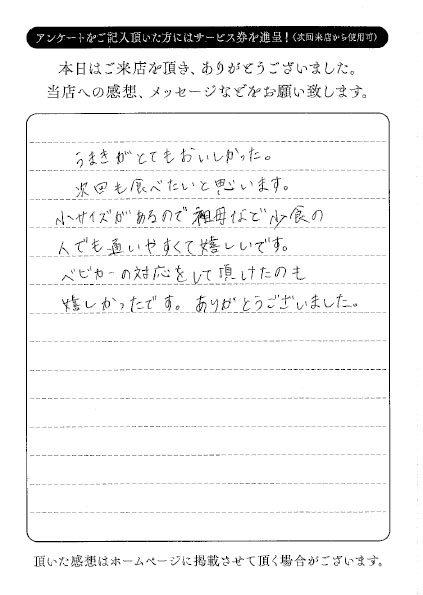 アンケートをご記入頂いた方にはサービス券を進呈！(次回来店から使用可)
本日はご来店を頂き、ありがとうございました。
当店への感想、メッセージなどをお願い致します。
うまきがとてもおいしかった。
次回も食べたいと思います。
小サイズがあるので祖母など少食の
人でも通いやすくて嬉しいです。
ベビカーの対応をして頂けたのも
嬉しかったです。ありがとうございました。
頂いた感想はホームページに掲載させて頂く場合がございます。